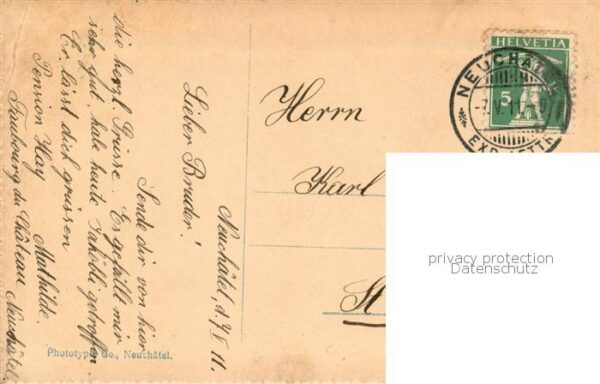 Neuchâtel, d. 7/V 11.
Lieber Bruder!
Sende dir von hier
die herzl. Grüsse. Es gefällt mir
sehr gut, habe heute Jakobli getroffen
Er lässt dich grüssen
Mathilde.
Pension Hay
Faubourg du Château Neuchâtel
Herrn
Karl
St
HELVETIA
5
NEUCHÂTEL
EXP. LETTR
Phototypie Co., Neuchâtel.
privacy protection
Datenschutz